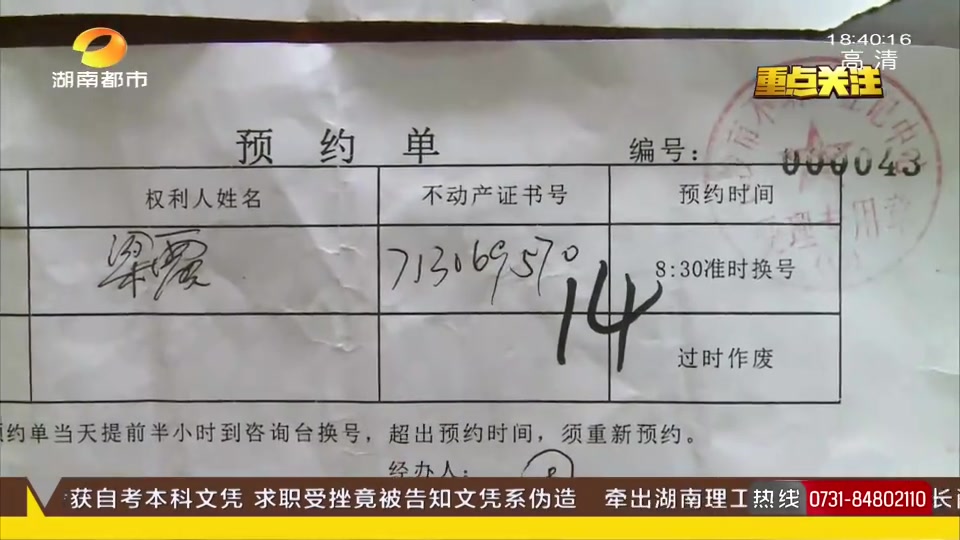 18:40:16
高清
湖南都市
重点关注
预约单
编号：
000043
权利人姓名
不动产证书号
预约时间
梁霞
713069570
14
8:30准时换号
过时作废
约单当天提前半小时到咨询台换号，超出预约时间，须重新预约。
经办人：
获自考本科文凭 求职受挫竟被告知文凭系伪造 牵出湖南理工
热线
0731-84802110